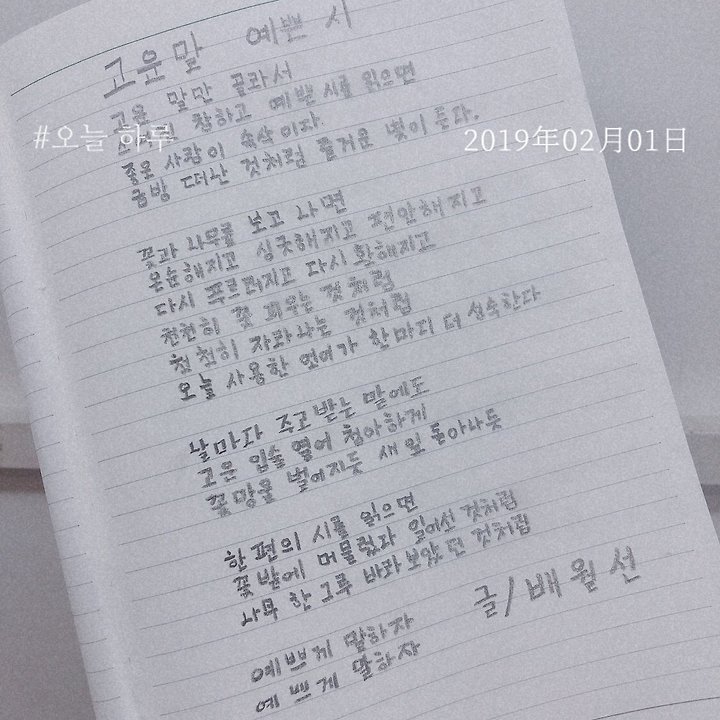 고운말 예쁜 시
고운 말만 골라서
참하고 예쁜 시를 읽으면
#오늘 하루
2019年02月01日
좋은 사람이 속삭이다
금방 떠난 것처럼 즐거운 벗이 듣다.
꽃과 나무를 보고 나면
온순해지고 싱긋해지고 편안해지고
다시 푸르러지고 다시 환해지고
천천히 꽃 피우는 것처럼
천천히 자라나는 것처럼
오늘 사용한 언어가 한마디 더 성숙한다
날마다 주고받는 말에도
고운 입술 열어 청아하게
꽃망울 벌어지듯 새 잎 돋아나듯
한편의 시를 읽으면
꽃밭에 머물렀다 일어선 것처럼
나무 한 그루 바라보았던 것처럼
글/배월선
예쁘게 말하자
예쁘게 말하자